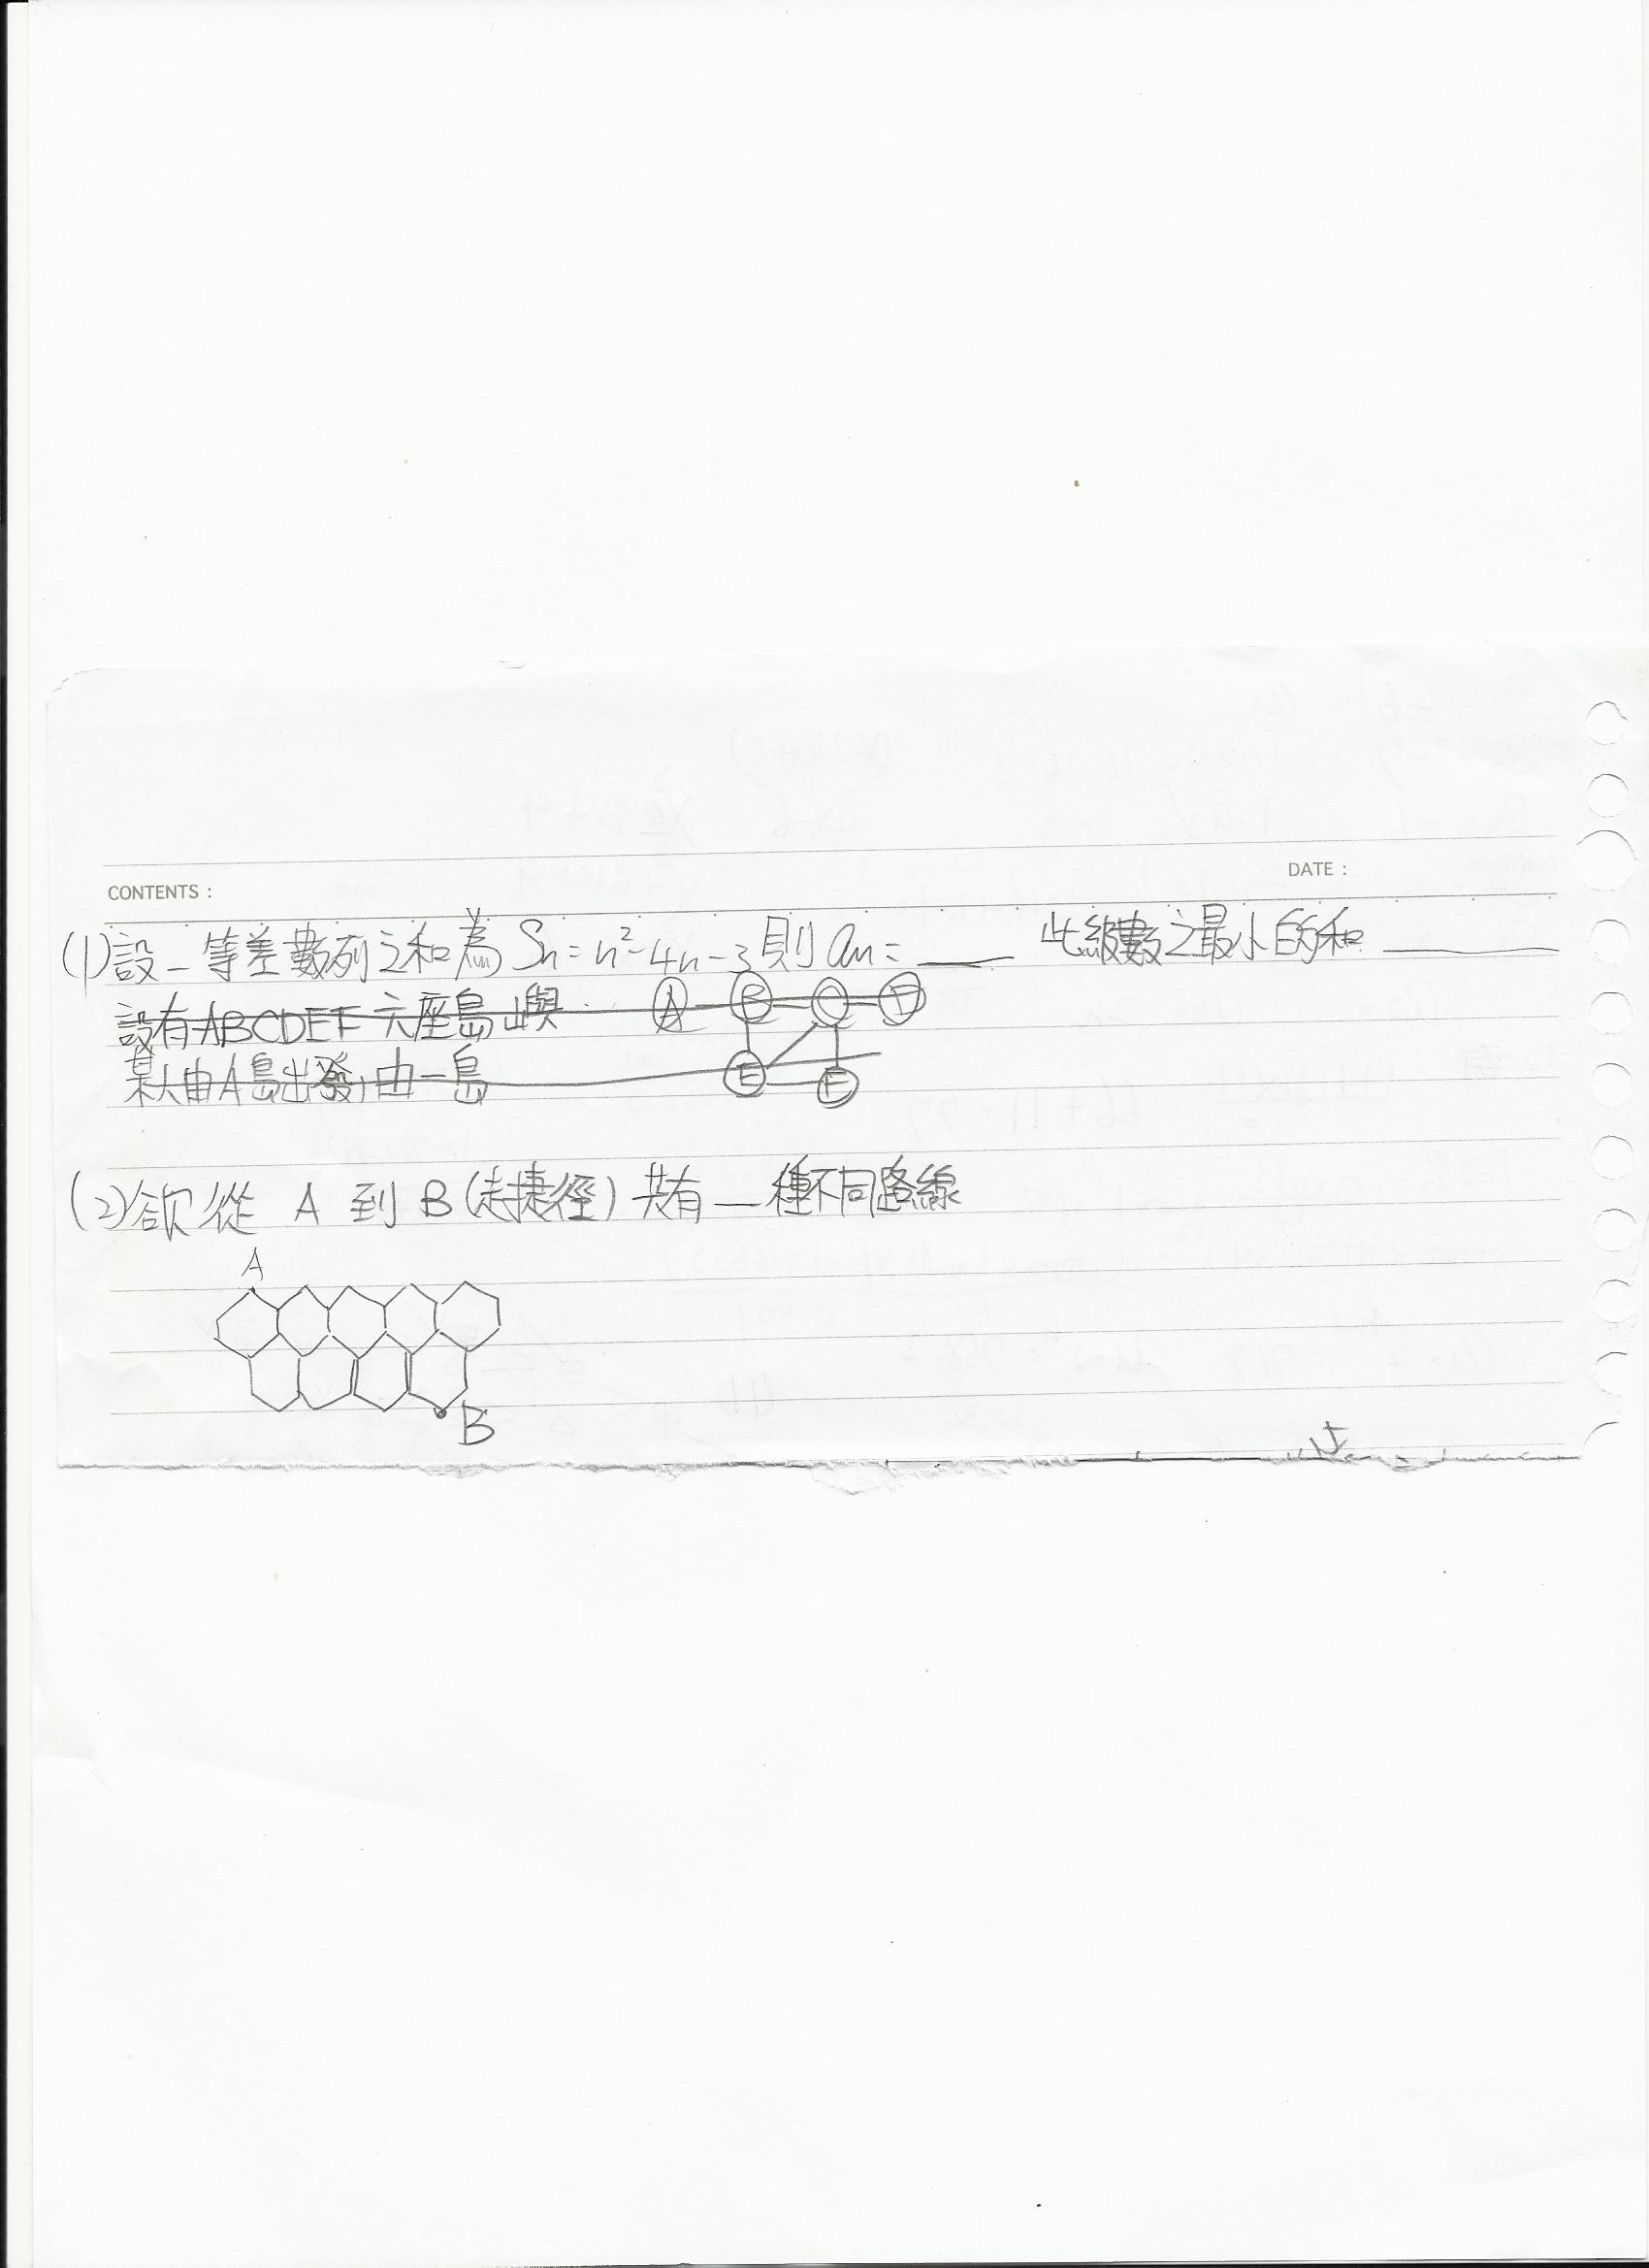 CONTENTS :
DATE :
(1)設一等差數列之和為 Sn=n²-4n-3則 an=____ 此級數之最小的和 ____
設有ABCDEF 六座島嶼
A B C D
某人由A島出發,由一島
E F
(2)欲從 A 到 B(走捷徑)共有__種不同路線
A
B